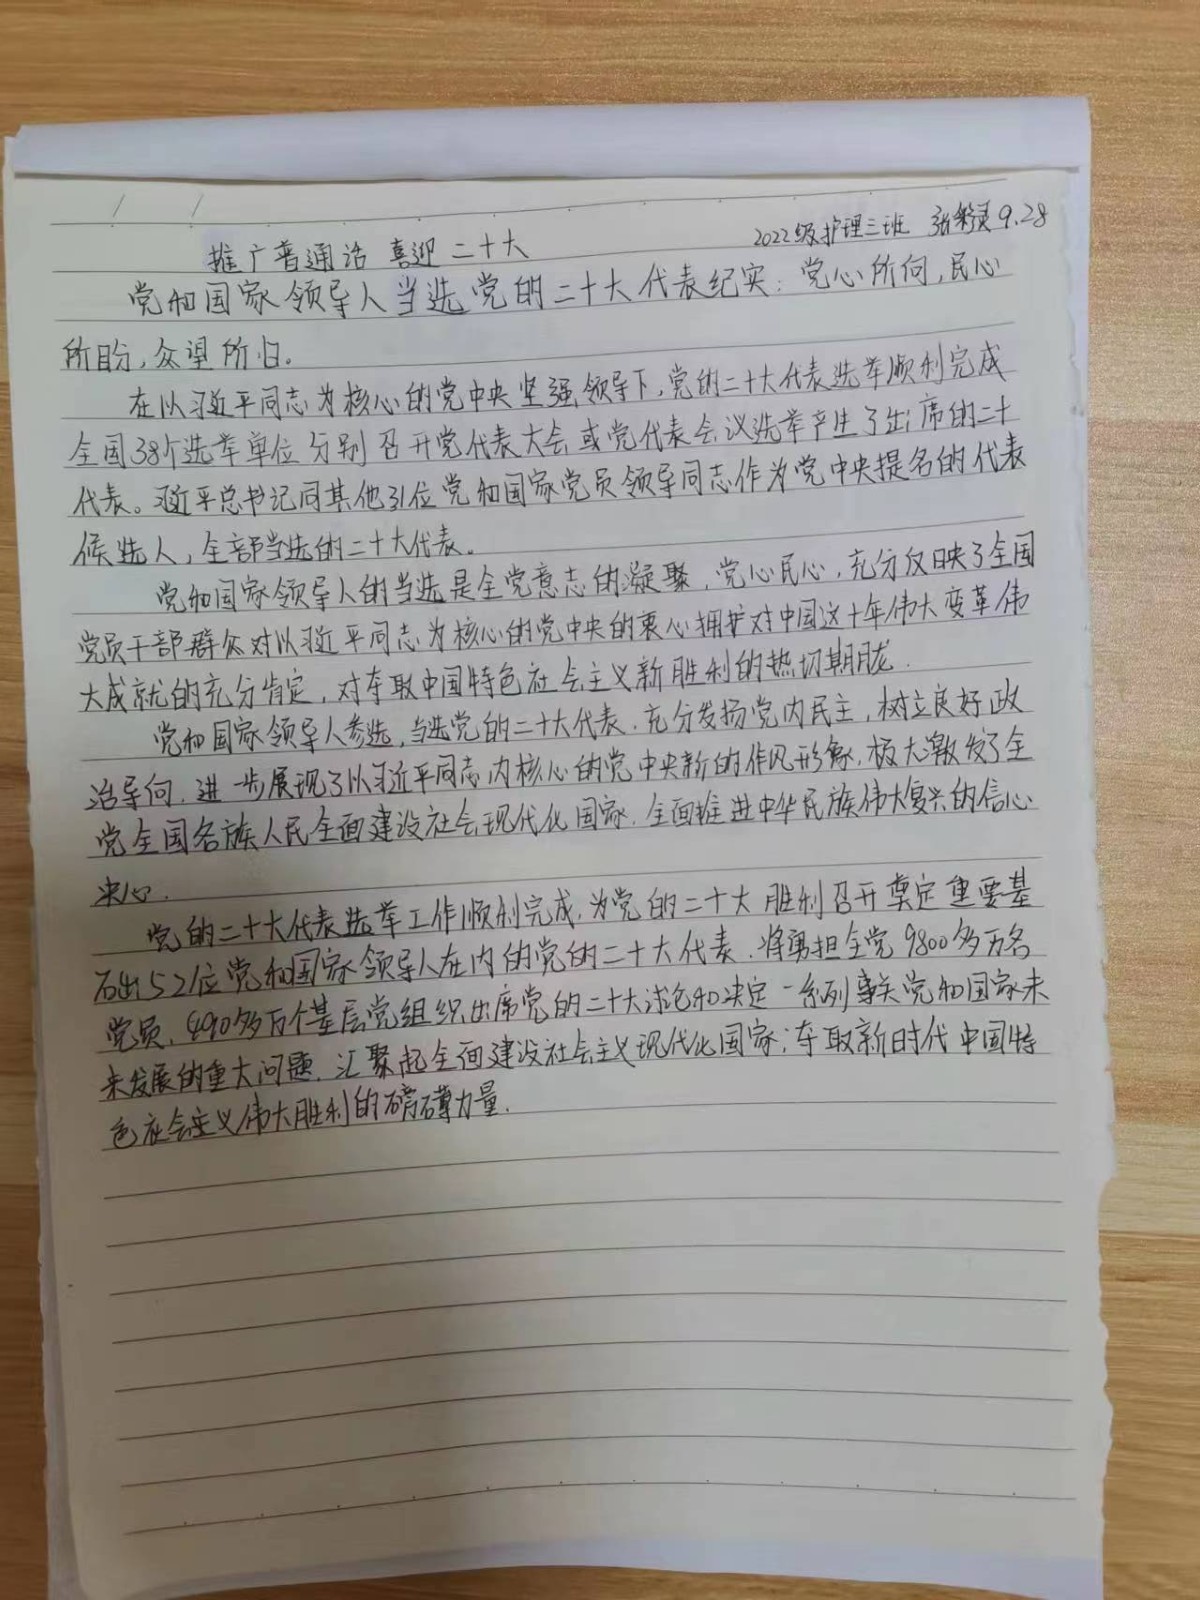 2022级护理三班 张 灵 9.28
推广普通话 喜迎二十大
党和国家领导人当选党的二十大代表纪实：党心所向，民心
所盼，众望所归。
在以习近平同志为核心的党中央坚强领导下，党的二十大代表选举顺利完成
全国38个选举单位分别召开党代表大会或党代表会议选举产生了出席的二十
代表。习近平总书记同其他31位党和国家党员领导同志作为党中央提名的代表
候选人，全部当选的二十大代表。
党和国家领导人的当选是全党意志的凝聚，党心民心，充分反映了全国
党员干部群众对以习近平同志为核心的党中央的衷心拥护对中国这十年伟大变革伟
大成就的充分肯定，对夺取中国特色社会主义新胜利的热切期
党和国家领导人参选，当选党的二十大代表，充分发扬党内民主，树立良好政
治导向，进一步展现了以习近平同志内核心的党中央新的作风形象，极大激发了全
党全国各族人民全面建设社会现代化国家，全面推进中华民族伟大复兴的信心
决心．
党的二十大代表选举工作顺利完成，为党的二十大胜利召开奠定重要基
础52位党和国家领导人在内的党的二十大代表，将肩担全党9800多万名
党员，490多万个基层党组织出席党的二十大讨论和决定一系列事关党和国家未
来发展的重大问题，汇聚起全面建设社会主义现代化国家；夺取新时代中国特
色社会主义伟大胜利的磅礴力量．